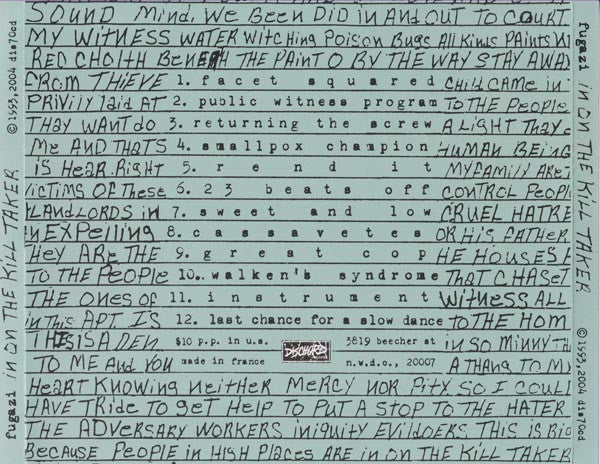 SOUND MIND. WE BEEN DID IN AND OUT TO COURT
MY WITNESS WATER WITCHING POISON BUGS ALL KINDS PAINTS
RED CHOLTH BENEATH THE PAINT O BY THE WAY STAY AWAY
FROM THIEVE 1. facet squared CHILD CAME IN
PRIVILY LAID AT 2. public witness program TO THE PEOPLE
THAY WANT DO 3. returning the screw A LIGHT THAY
ME AND THATS 4. smallpox champion HUMAN BEING
IS HEAR. RIGHT 5. rend it MY FAMILY ARE
VICTIMS OF THESE 6. 23 beats off CONTROL PEOPL
LANDLORDS IN 7. sweet and low CRUEL HATRE
IN EXPELLING 8. cassavetes OR HIS FATHER
THEY ARE THE 9. great cop HE HOUSES
TO THE PEOPLE 10. walken's syndrome THAT CHASET
THE ONES OF 11. instrument WITNESS ALL
IN THIS APT. IS 12. last chance for a slow dance TO THE HOM
THIS IS A DEN $10 p.p. in u.s. DISCHORD 3819 beecher st IN SO MINNY TH
TO ME AND YOU made in france n.w.d.c., 20007 A THANG TO MY
HEART KNOWING NEITHER MERCY NOR PITY SO I COULD
HAVE TRIDE TO GET HELP TO PUT A STOP TO THE HATER
THE ADVERSARY WORKERS INIQUITY EVILDOERS THIS IS BIG
BECAUSE PEOPLE IN HIGH PLACES ARE IN ON THE KILL TAKER
fugazi IN ON THE KILL TAKER ©1993,2004 dis70cd
fugazi IN ON THE KILL TAKER ©1993,2004 dis70cd